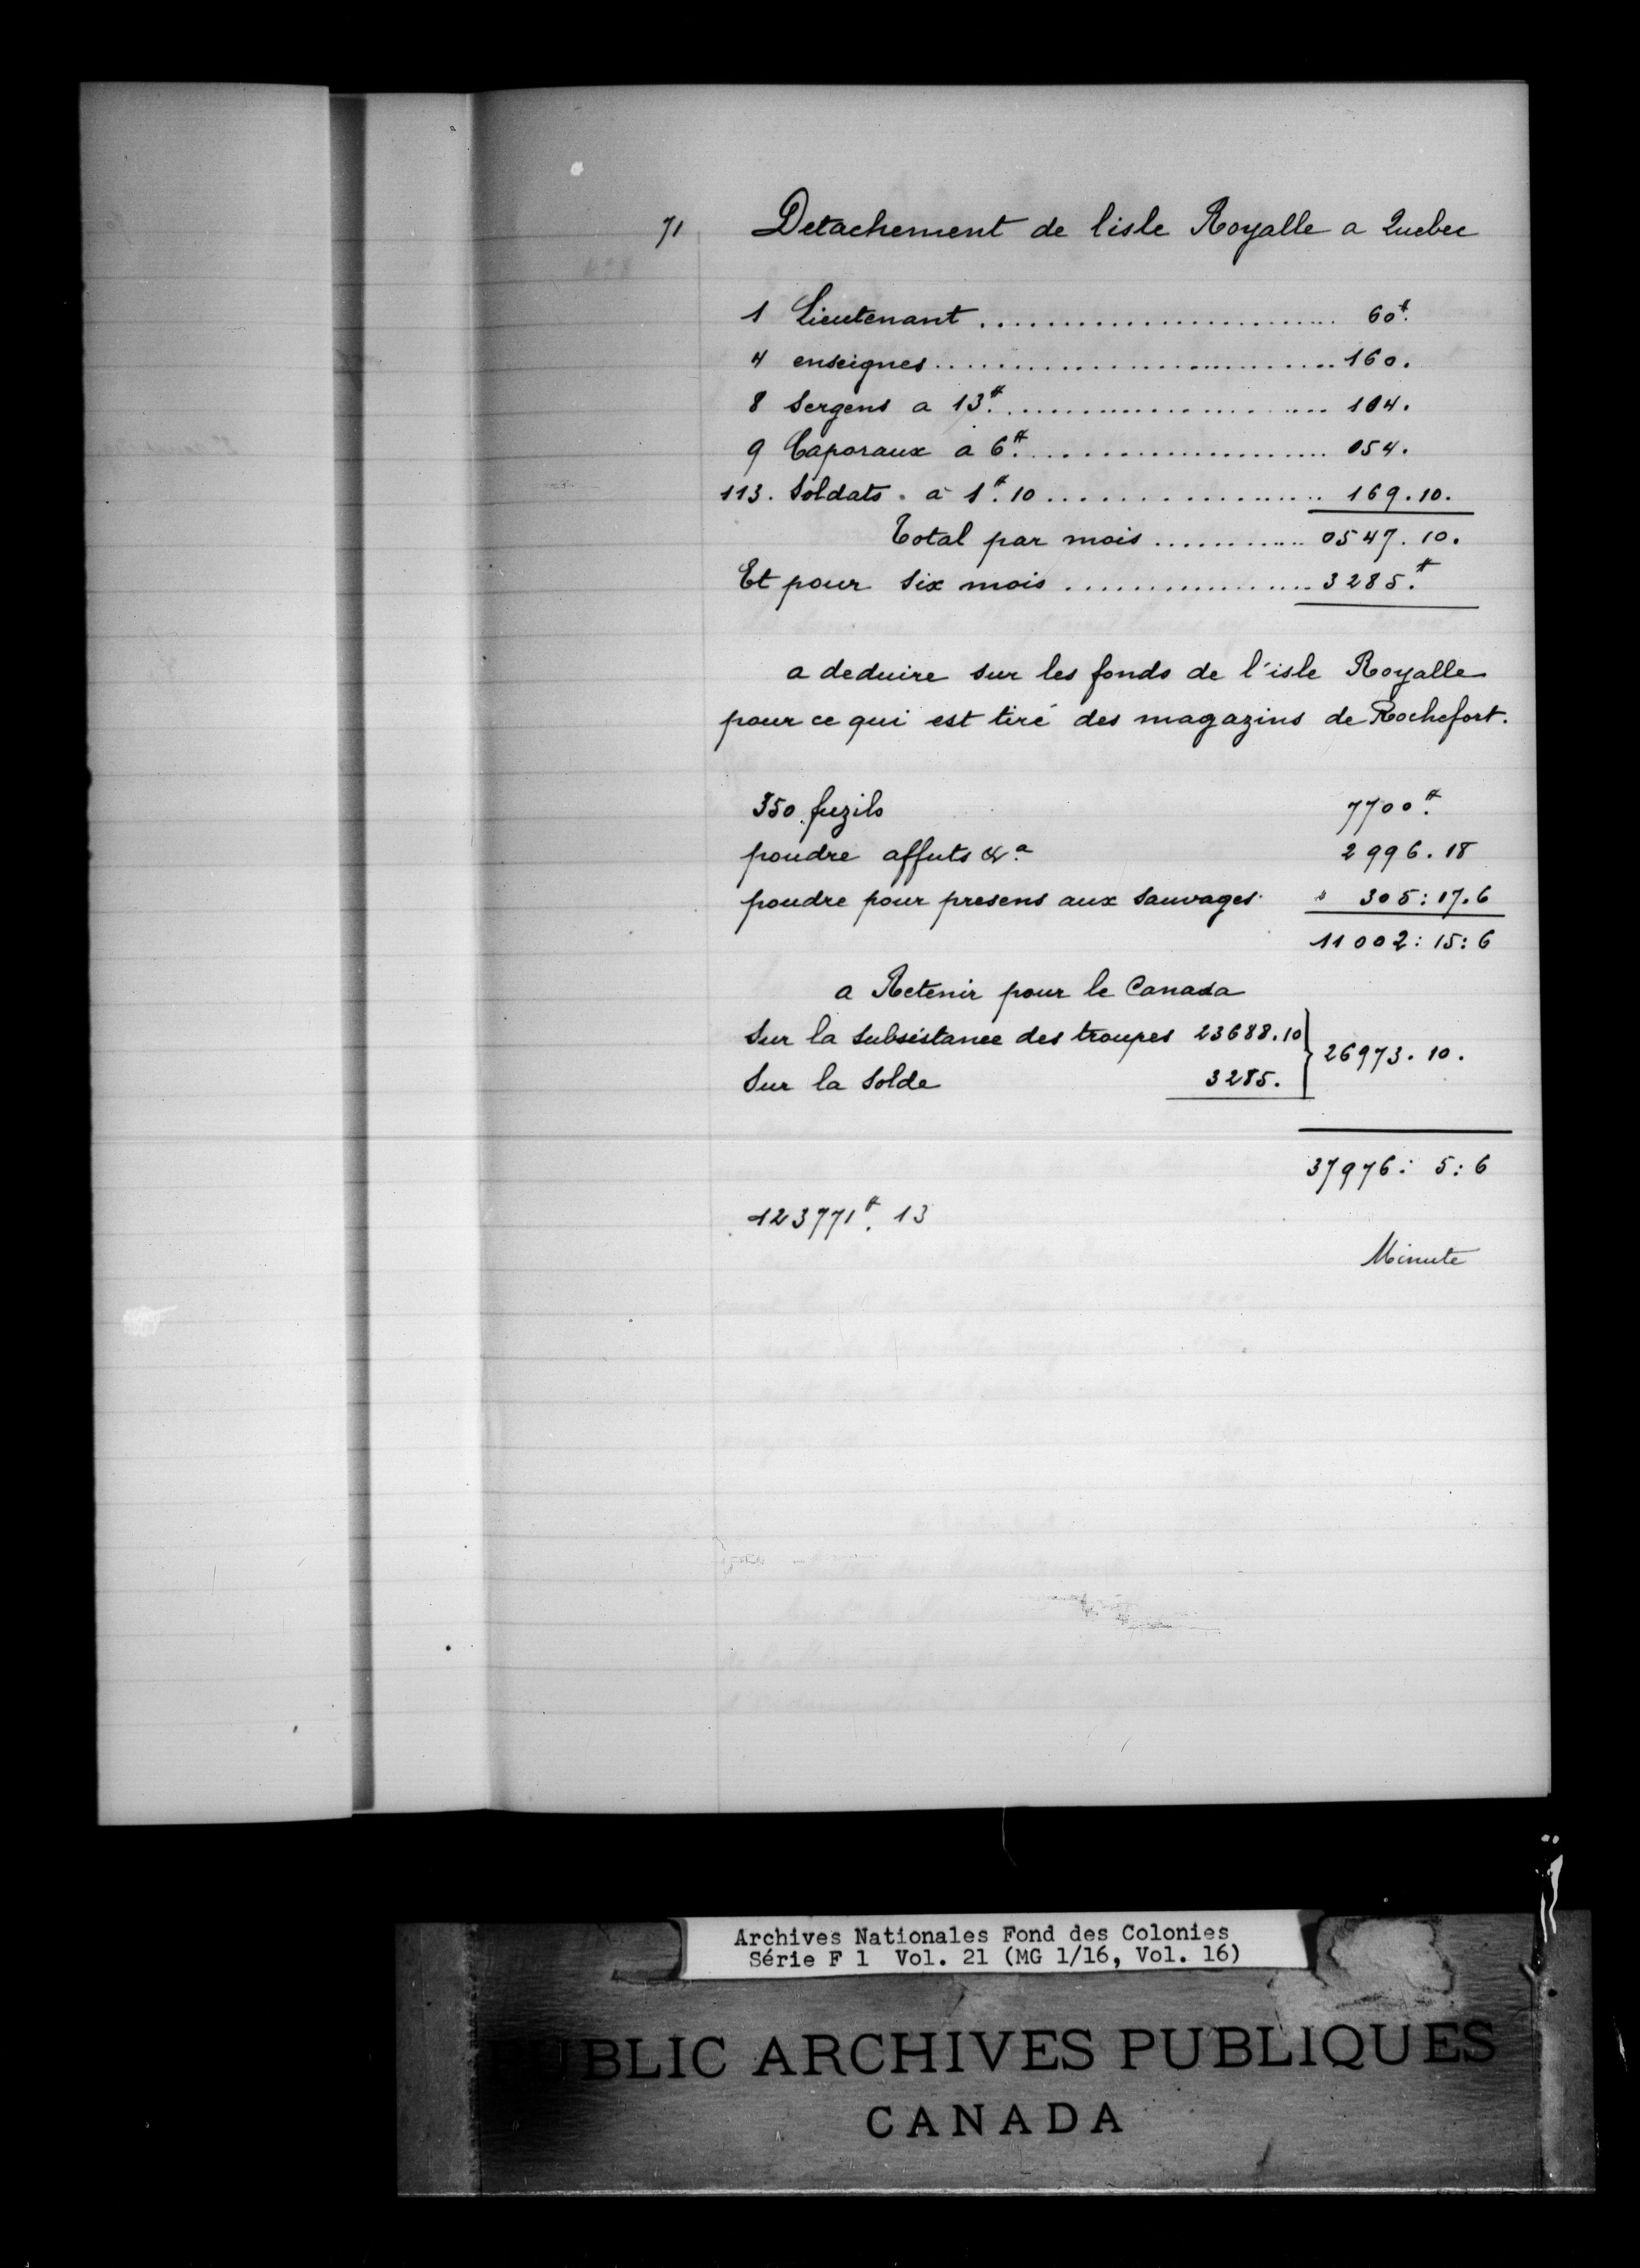 71 Detachement de l'isle Royalle a Quebec
1 Lieutenant ........................ 60#.
4 enseignes ........................ 160.
8 Sergens a 13#. ........................ 104.
9 Caporaux a 6#. ........................ 054.
113. Soldats. a 1#. 10 ........................ 169.10.
Total par mois ............ 0547. 10.
Et pour Six mois ................. 3285.#
a deduire sur les fonds de l'isle Royalle
pour ce qui est tiré des magazins de Rochefort.
350 fuzils 7700#.
poudre affuts &.a 2996. 18
poudre pour presens aux Sauvages. " 305: 17.6
11002: 15: 6
a Retenir pour le Canada
Sur la Subsistance des troupes 23688.10 } 26973. 10.
Sur la Solde 3285.
37976: 5: 6
123771#. 13
Minute
Archives Nationales Fond des Colonies
Série F 1 Vol. 21 (MG 1/16, Vol. 16)
PUBLIC ARCHIVES PUBLIQUES
CANADA